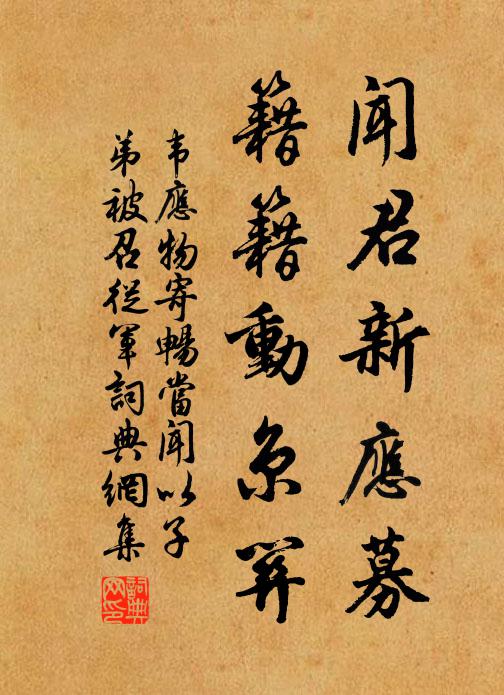 闻君新應募
籍籍動京關
韦應物寄暢當闻以子
弟被召從軍詞典網集
詞典
网印